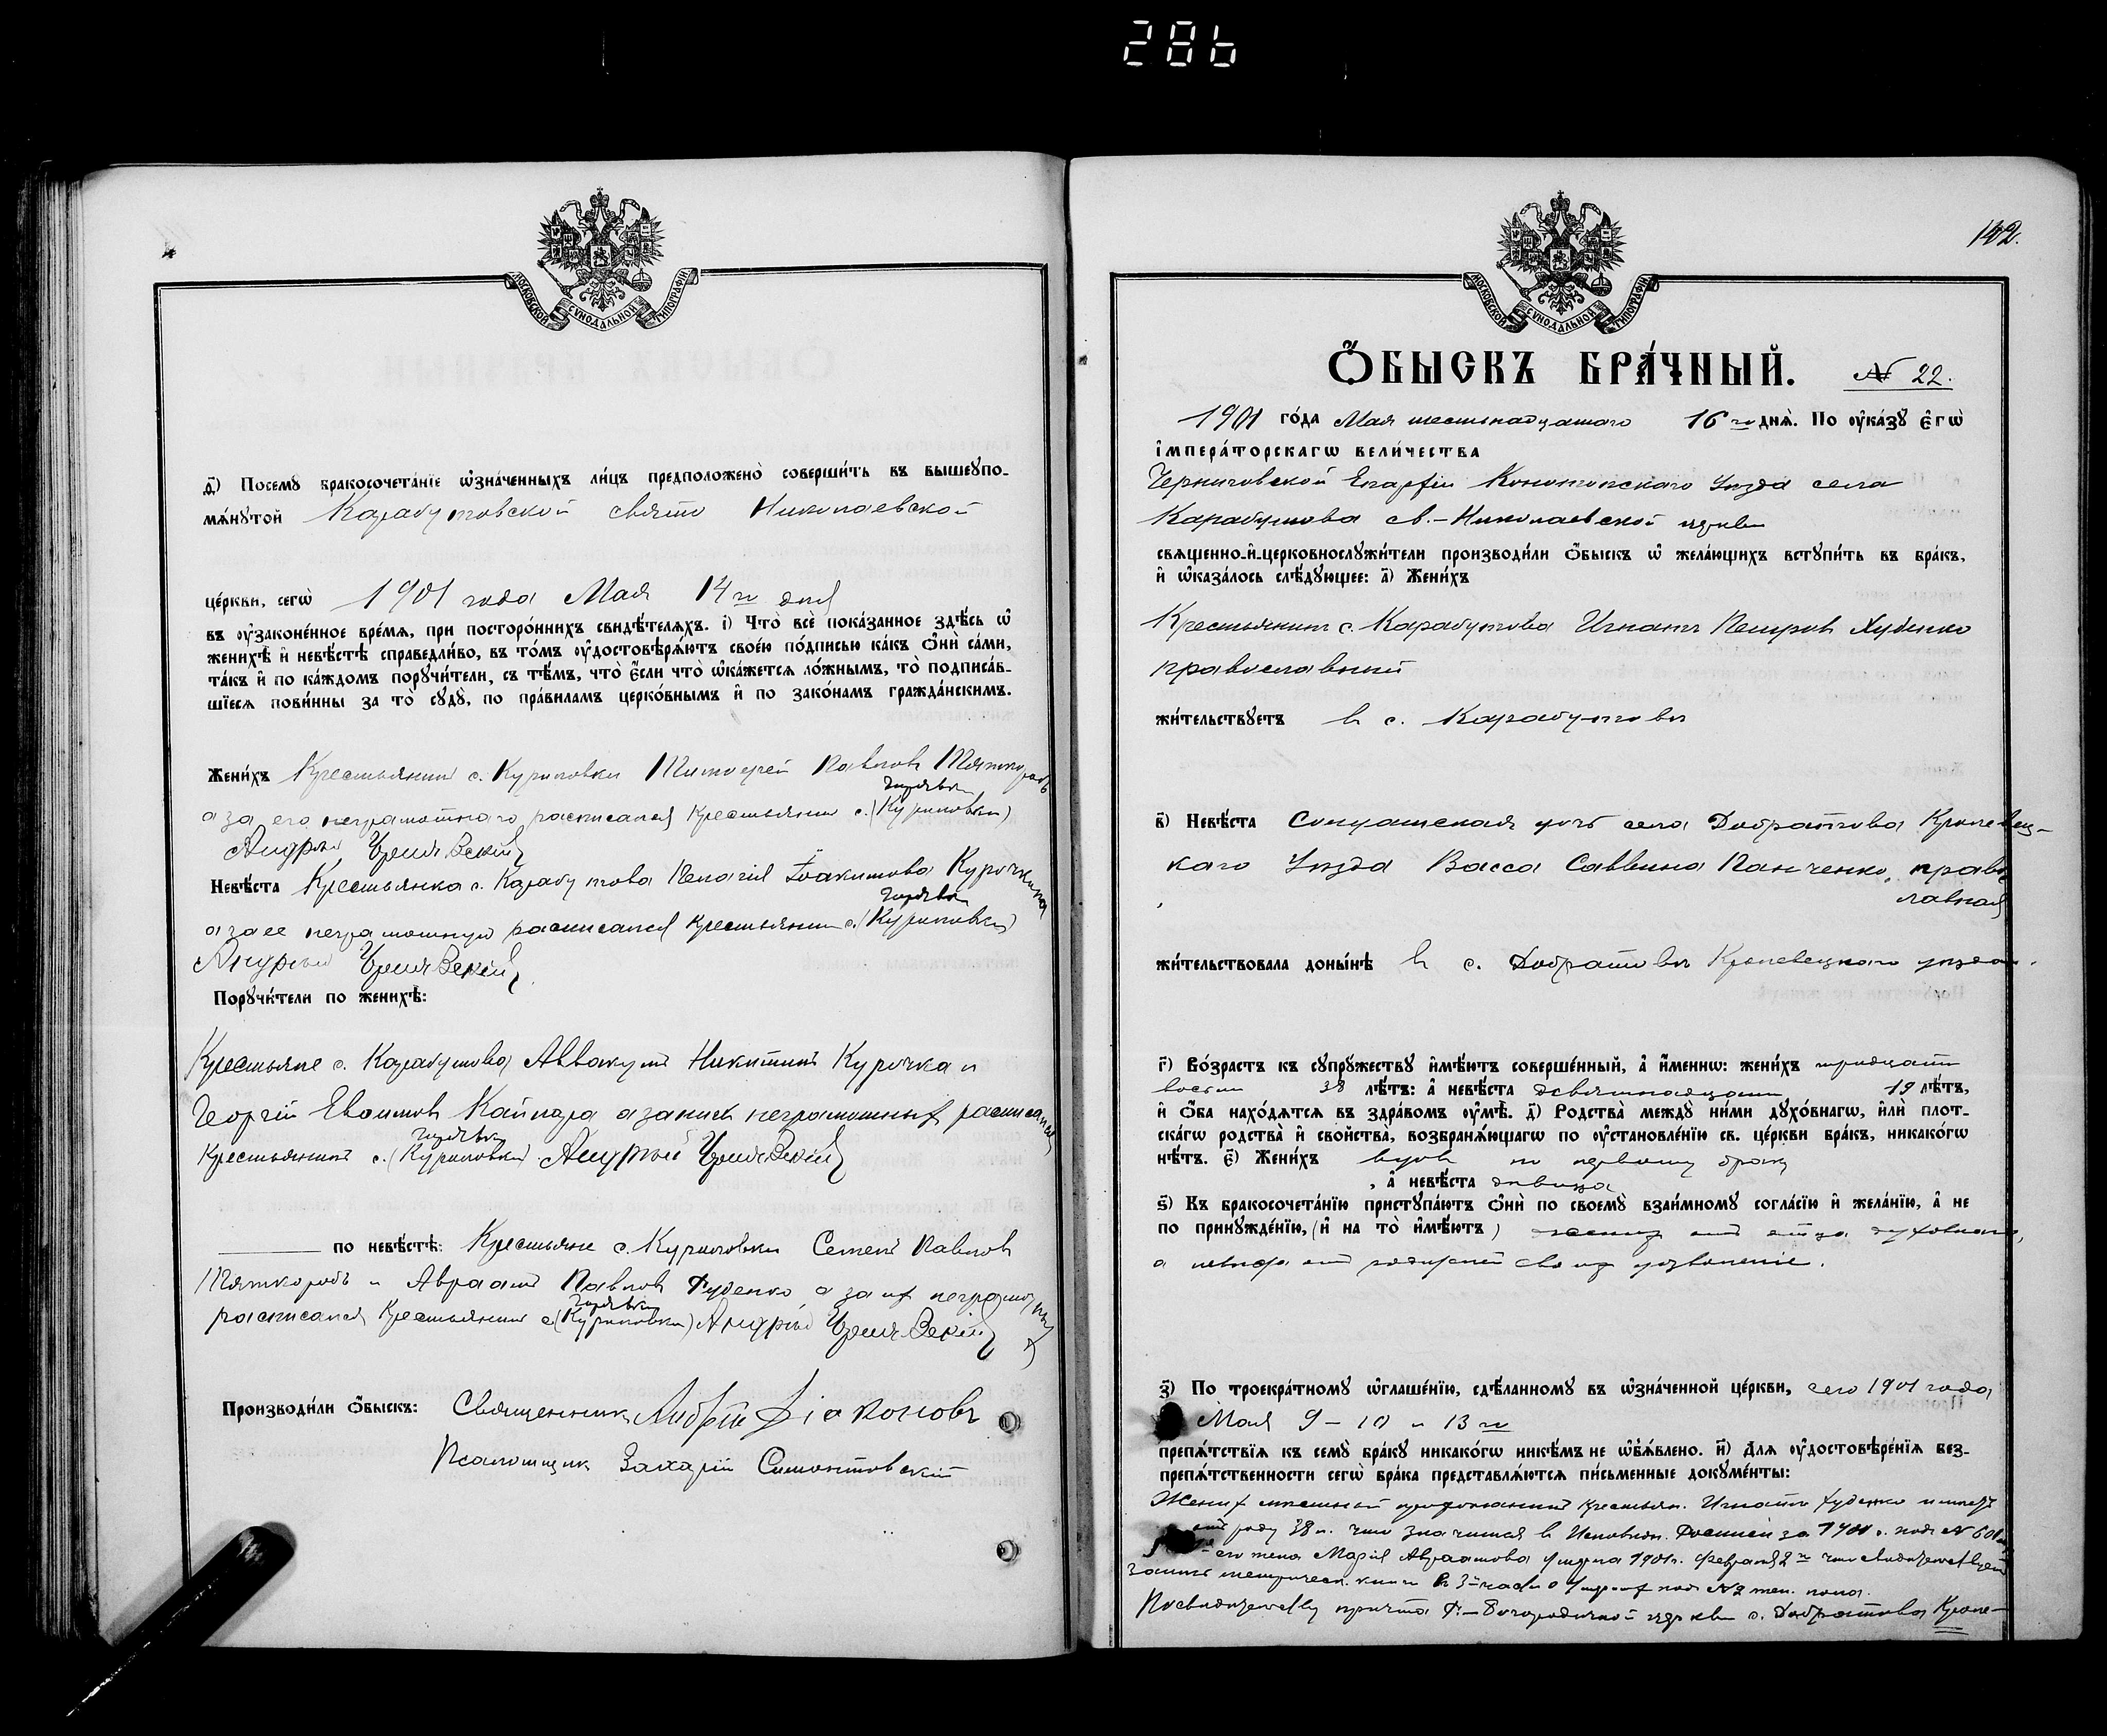 286
МОСКОВСКОЙ СѴНОДАЛЬНОЙ ТИПОГРАФІИ
д҃) Посемꙋ бракосочета́нїе ѡ҆зна́ченныхъ ли́цъ предположено̀ соверши́ть въ вышеꙋпо-
мѧ́нꙋтой Карабутовской свято Николаевской
це́ркви, сегѡ̀ 1901 года Мая 14 го дня
въ ᲂу҆законе́нное вре́мѧ, при посторо́ннихъ свидѣ́телѧхъ. і҃) Что̀ всѐ пока́занное здѣ́сь ѡ҆
женихѣ̀ и҆ невѣ́стѣ справедли́во, въ то́мъ ᲂу҆достовѣрѧ́ютъ свое́ю по́дписью ка́къ ѻ҆нѝ са́ми,
та́къ и҆ по ка́ждомъ порꙋчи́тели, съ тѣ́мъ, что̀ є҆́сли что̀ ѡ҆ка́жетсѧ ло́жнымъ, то̀ подписа́в-
шїесѧ пови́нны за то̀ сꙋдꙋ̀, по пра́виламъ церко́внымъ и҆ по зако́намъ гражда́нскимъ.
Жени́хъ Крестьянинъ с. Куриловки Тимофей Павловъ Пяткоробъ
а за его неграмотнаго расписался крестьянинъ с. (Куриловки)
Андрей
Невѣ́ста Крестьянка с. Карабутова Пелагія Іоакимова Курочкина
а за ее неграмотную расписался крестьянинъ с. (Куриловки)
Андрей
Порꙋчи́тели по женихѣ̀:
Крестьяне с. Карабутова Аввакумъ Никитинъ Курочка и
Георгій Евфимовъ а за нихъ неграмотныхъ расписался
Крестьянинъ с. (Куриловки) Андрей
по невѣ́стѣ: Крестьяне с. Куриловки Семенъ Павловъ
Пяткоробъ и Авраамъ Павловъ Худенко а за их неграмотных
расписался Крестьянинъ с. (Куриловки) Андрей
Производи́ли ѻ҆́быскъ: Священникъ Андрей Діаконовъ
Псаломщикъ Захарій Симонтовскій
102.
МОСКОВСКОЙ СѴНОДАЛЬНОЙ ТИПОГРАФІИ
Ѻ҆́БЫСКЪ БРА́ЧНЫЙ. № 22.
1901 го́да Мая шестьнадцатаго 16 го днѧ̀. По ᲂу҆ка́зꙋ є҆гѡ̀
і҆мпера́торскагѡ вели́чества
Черниговской Епархіи Конотопскаго Уѣзда села
Карабутова св.-Николаевской церкви
свѧще́нно-и҆-церковнослꙋжи́тели производи́ли ѻ҆́быскъ ѡ҆ жела́ющихъ встꙋпи́ть въ бра́къ,
и҆ ѡ҆каза́лось слѣ́дꙋющее: а҃) Жени́хъ
Крестьянинъ с. Карабутова Игнатъ Петровъ Худенко
православный
жи́тельствꙋетъ в с. Карабутовѣ
в҃) Невѣ́ста дочь села Добратова Кролевец-
каго Уѣзда Васса Саввина Панченко, право
славная
жи́тельствовала доны́нѣ в с. Добратовѣ Кролевецкаго уѣзда.
г҃) Во́зрастъ къ сꙋпрꙋ́жествꙋ и҆мѣ́ютъ соверше́нный, а҆ и҆́менно: жени́хъ тридцати
восьми 38 лѣ́тъ: а҆ невѣ́ста девятнадцати 19 лѣ́тъ,
и҆ ѻ҆́ба нахо́дѧтсѧ въ здра́вомъ ᲂу҆мѣ̀. д҃) Родства̀ междꙋ̀ ни́ми дꙋхо́внагѡ, и҆лѝ плот-
ска́гѡ родства̀ и҆ свойства̀, возбранѧ́ющагѡ по ᲂу҆становле́нїю св. це́ркви бра́къ, никако́гѡ
нѣ́тъ. є҃) Жени́хъ вдовъ по первому браку
, а҆ невѣ́ста дѣвица
ѕ҃) Къ бракосочета́нїю пристꙋпа́ютъ ѻ҆нѝ по своемꙋ̀ взаи́мномꙋ согла́сїю и҆ жела́нїю, а҆ не
по принꙋжде́нїю, (и҆ на то̀ и҆мѣ́ютъ) жених отъ отца духовнаго,
а невѣста отъ родителей своих дозволеніе.
з҃) По троекра́тномꙋ ѡ҆глаше́нїю, сдѣ́ланномꙋ въ ѡ҆зна́ченной це́ркви, сего 1901 года
Мая 9 – 10 и 13 го
препѧ́тствїѧ къ семꙋ̀ бра́кꙋ никако́гѡ никѣ́мъ не ѡ҆б̾ѧ́влено. и҃) Длѧ ᲂу҆достовѣре́нїѧ без-
препѧ́тственности сегѡ̀ бра́ка представлѧ́ютсѧ пи́сьменные докꙋме́нты:
Жених мѣстный прихожанинъ крестьян. Игнатъ Худенко имѣетъ
отъ роду 38 л. что значится в Исповѣдн. Росписи за 1901 г. подъ №
его жена Марія Авраамова умерла 1901 г. Февраля 2 го
запись метрическ. книги в 3-й части о умерших под №2 жен. пола.
По свидетельству причта Р.-Богородичной церкви с. Добратова Кроле-